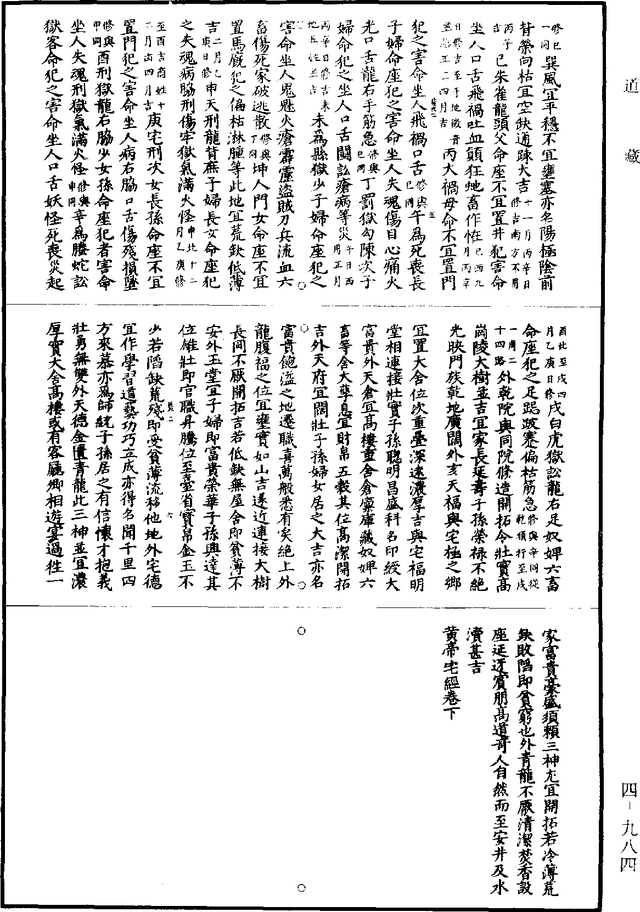 道藏
修巳一同巽風宜平穩不宜壅塞亦名陽極陰前
背榮向枯宜空缺通疎大吉十一月丙辛日修吉南方不用
丙子巳朱雀龍頭父命座不宜置井犯害命
坐人口舌飛禍吐血顛狂地畜作怪巳酉九月丙辛
日修吉至子地徵音並忌五二四月吉丙大禍母命不宜置門
犯之害命坐人飛禍口舌修與巳同午爲死喪長
子婦命座犯之害命坐人失魂傷目心痛火
光口舌龍右手筋急修與巳同丁罰獄勾陳次子
婦命犯之坐人口舌鬪訟瘡病等災
丙辛日修吉未爲縣獄少子婦命座犯之
害命坐人鬼魅火瘡霹靂盜賊刀兵流血六
畜傷死家破逃散修與丁同坤人門女命座不宜
置馬廐犯之偏枯淋腫等此地宜荒缺低薄
吉二月乙庚日修申天刑龍背庶子婦長女命座犯
之失魂病脇刑傷牢獄氣滿火怪申北十二月乙庚修
至酉吉商姓十一月四月吉庚宅刑次女長孫命座不宜
置門犯之害命坐人病右脇口舌傷殘損墜
修與申同酉刑獄龍右脇少女孫命座犯者害命
坐人失魂刑獄氣滿火怪修與申同辛爲螣蛇訟
獄客命犯之害命坐人口舌妖怪死喪災起
酉北至戌四月乙庚日修戌白虎獄訟龍右足奴婢六畜
命座犯之足跽跛蹇偏枯筋急修與辛同從乾橫行至戌
一周二十四路外乾院與同院修造開拓令壯實高
崗陵大樹並吉宜家長延壽子孫榮祿不絶
光映門族乾地廣闊外亥天福與宅極之鄉
宜置大舍位次重疊深遠濃厚吉與宅福明
堂相連接壯實子孫聰明昌盛科名印綬大
富貴外天倉宜高樓重舍倉廩庫藏奴婢六
畜等舍大孳息宜財帛五穀其位高潔開拓
吉外天府宜闊壯子孫婦女居之大吉亦名
富貴飽溢之地遷職喜萬般悉有矣絶上外
龍腹福之位宜壅實如山吉遠近連接大樹
長岡不厭開拓吉若低缺無屋舍即貧薄不
安外玉堂宜子婦即富貴榮華子孫興達其
位雄壯即官職昇騰位至臺省寶帛金玉不
少若陷缺荒殘即受貧薄流移他地外宅德
宜作學習道藝功巧立成亦得名聞千里四
方來慕亦爲師統子孫居之有信懷才抱義
壯勇無雙外天德金匱青龍此三神並宜濃
厚實大舍高樓或有客廳卿相遊宴過往一
家富貴豪盛須賴三神尤宜開拓若冷薄荒
缺敗陷即貧窮也外青龍不厭清潔焚香設
座延迓賓朋高道奇人自然而至安井及水
瀆甚吉
黃帝宅經卷下
四－九八四